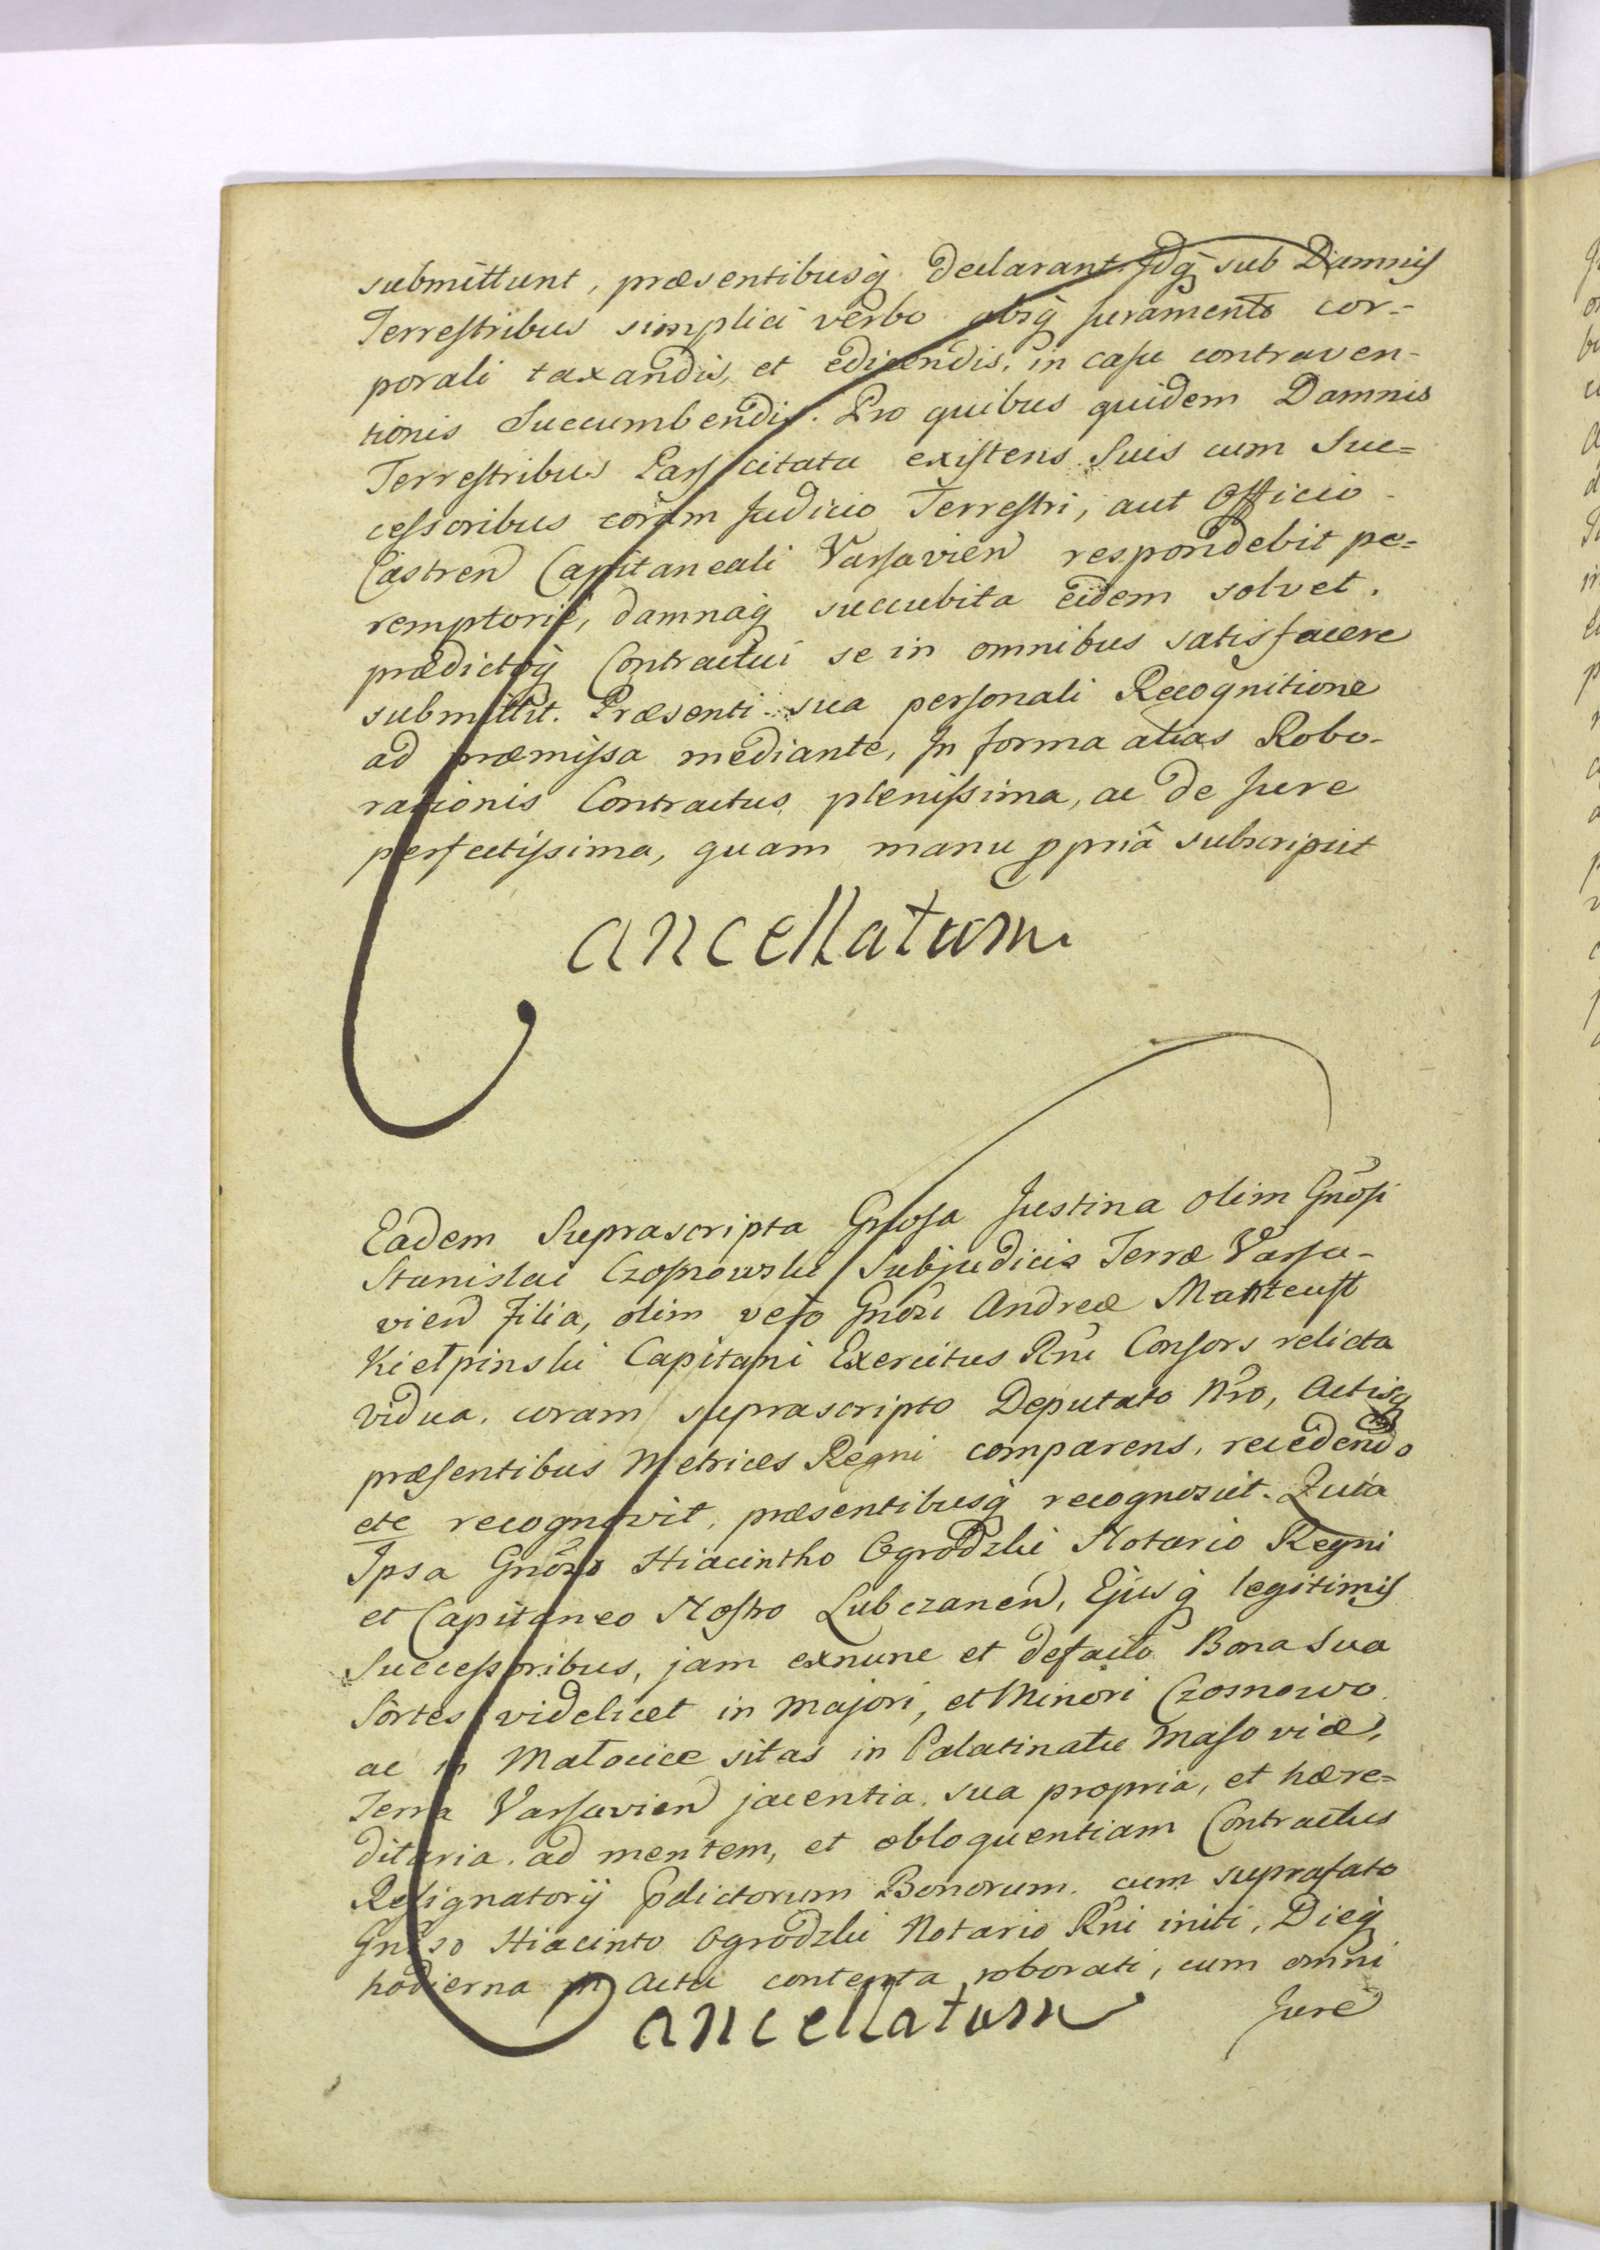 submittunt, præsentibusq́ declarant. Idq́ sub Damnis
Terrestribus simplici verbo absq́ Juramento cor-
porali taxandis, et edicendis, in casu contraven-
tionis Succumbendis. Pro quibus quidem Damnis
Terrestribus Pars citata existens Suis cum Suc=
cessoribus coram Judicio Terrestri, aut Officio
Castren Capitaneali Varsavien respondebit pe=
remptorie, damnaq́ succubita eidem solvet,
prædictoq́ Contractui se in omnibus satisfacere
submittit. Præsenti sua personali Recognitione
ad præmissa mediante, In forma alias Robo-
rationis Contractus plenissima, ac de Jure
perfectissima, quam manu ppriâ subscripsit
Cancellatum
Eadem Suprascripta Gnosa Justina olim Gnosi
Stanislai Czosnowski Subjudicis Terræ Varsa-
vien Filia, olim vero Gnosi Andreæ Manteuft
Kiełpinski Capitani Exercitus Rni Consors relicta
vidua, coram suprascripto Deputato Nro, Actisq́
præsentibus Metrices Regni comparens, recedendo
etc recognovit, præsentibusq́ recognoscit. Quia
Ipsa Gnoso Hiacintho Ogrodzki Notario Regni
et Capitaneo Nostro Lubczanen, Ejusq́ legitimis
Successoribus, jam exnunc et defacto Bona Sua
Sortes videlicet in Majori, et Minori Czosnowo
ac in Małocice sitas in Palatinatu Masoviæ,
Terra Varsavien jacentia, sua propria, et hære=
ditaria, ad mentem, et obloquentiam Contractus
Resignatorij pdictorum Bonorum, cum suprafato
Gnoso Hiacinto Ogrodzki Notario Rni initi, Dieq́
hodierna in Acta contenta roborati, cum omni
Jure
Cancellatum